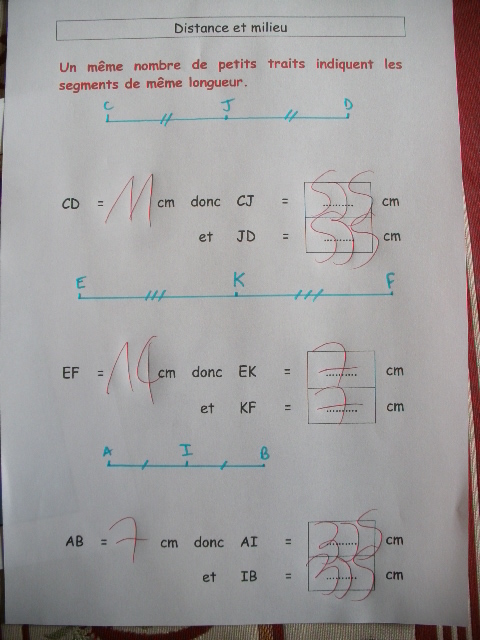 Distance et milieu
Un même nombre de petits traits indiquent les
segments de même longueur.
C J D
CD = 11 cm donc CJ = 5,5 cm
et JD = 5,5 cm
E K F
EF = 14 cm donc EK = 7 cm
et KF = 7 cm
A I B
AB = 7 cm donc AI = 3,5 cm
et IB = 3,5 cm